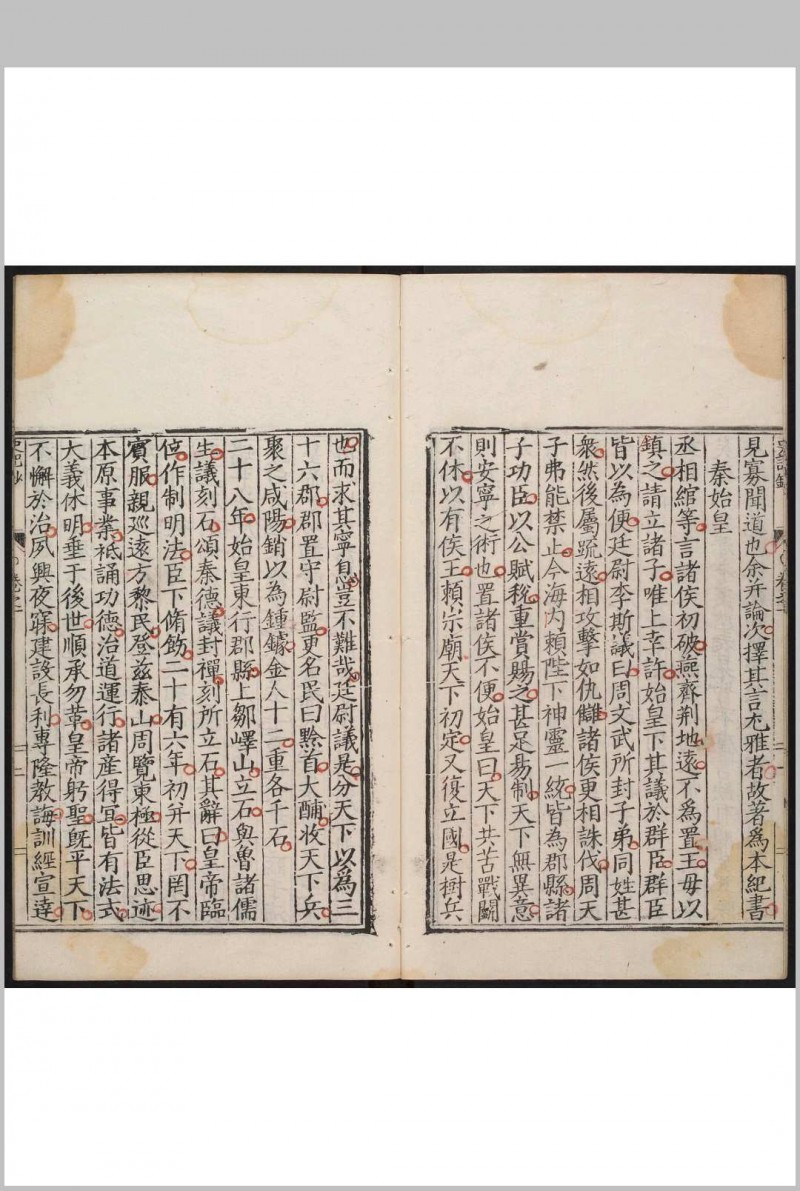 見寡聞道也余并論次擇其言尤雅者故著爲本紀書
秦始皇
丞相綰等言諸侯初破燕齊荆地遠不爲置王毋以
鎮之請立諸子唯上幸許始皇下其議於群臣群臣
皆以為便廷尉李斯議曰周文武所封子弟同姓甚
衆然後屬䟽遠相攻擊如仇讎諸侯更相誅伐周天
子弗能禁止今海内賴陛下神靈一統皆為郡縣諸
子功臣以公賦稅重賞賜之甚足昜制天下無異意
則安寧之術也置諸侯不便始皇曰天下共苦戰鬭
不休以有侯王賴宗廟天下初定又復立國是樹兵
也而求其寧息豈不難哉廷尉議是分天下以爲三
十六郡郡置守尉監更名民曰黔首大酺收天下兵
聚之咸陽銷以為鍾鐻金人十二重各千石
二十八年始皇東行郡縣上鄒嶧山立石與魯諸儒
生議刻石頌秦德議封禪刻所立石其辭曰皇帝臨
位作制明法臣下脩飭二十有六年初并天下罔不
賓服親巡遠方黎民登兹泰山周覽東極從臣思迹
本原事業祗誦功德治道運行諸産得宜皆有法式
大義休明垂于後世順承勿革皇帝躬聖旣平天下
不懈於治夙興夜寐建設長利專隆教誨訓經宣達